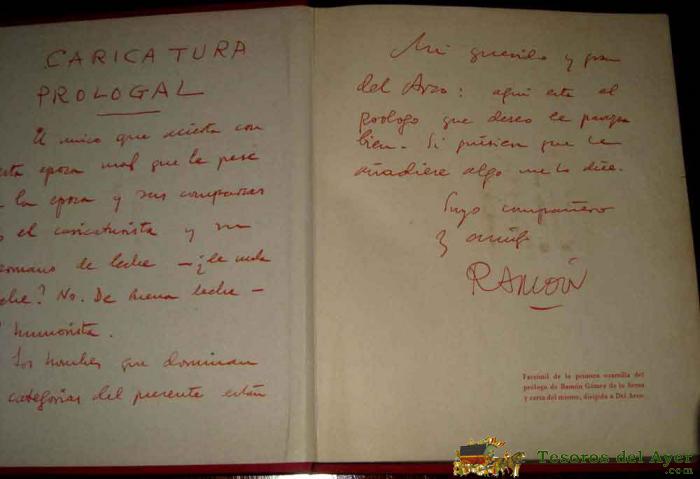 CARICATURA
PROLOGAL
El único que acierta con
esta época mal que le pese
a la época y sus comparsas
es el caricaturista y su
hermano de leche — ¿de mala
leche? No. De buena leche —
el humorista.
Los hombres que dominan
categorías del presente están
Mi querido y gran
del Arco: aquí está el
prólogo que deseo le parezca
bien. Si quisiera que le
añadiese algo me lo dice.
Suyo compañero
y amigo
RAMÓN
Facsímil de la primera cuartilla del
prólogo de Ramón Gómez de la Serna
y carta del mismo, dirigida a Del Arco.
Tesoros del Ayer
.com